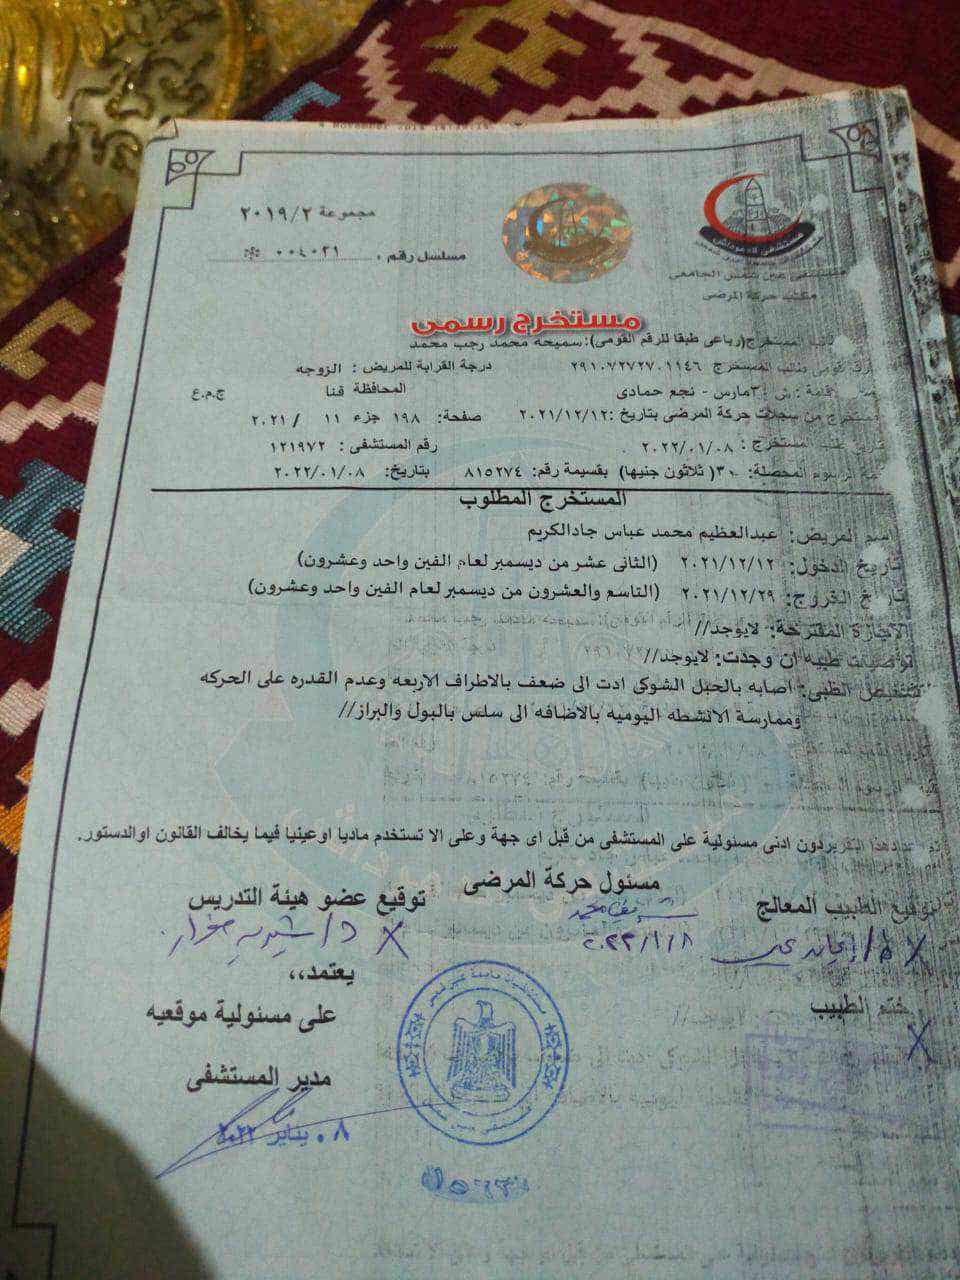 مجموعة ٢٠١٩/٢
مسلسل رقم ٠٠٤٠٢١
مستشفى عين شمس الجامعى
مكتب حركة المرضى
مستخرج رسمى
المستخرج(رباعى طبقا للرقم القومى): سميحه محمد رجب محمد
قومى طالب المستخرج ٢٩١٠٧٢٧٢٧٠١١٤٦ درجة القرابة للمريض: الزوجه
ش ٣مارس - نجع حمادى المحافظة قنا ج.م.ع
من سجلات حركة المرضى بتاريخ :٢٠٢١/١٢/١٢ صفحة: ١٩٨ جزء ١١ / ٢٠٢١
المستخرج : ٢٠٢٢/٠١/٠٨ رقم المستشفى : ١٢١٩٧٢
المحصلة: ٣٠( ثلاثون جنيها) بقسيمة رقم: ٨١٥٢٧٤ بتاريخ: ٢٠٢٢/٠١/٠٨
المستخرج المطلوب
اسم المريض: عبدالعظيم محمد عباس جادالكريم
تاريخ الدخول: ٢٠٢١/١٢/١٢ (الثانى عشر من ديسمبر لعام الفين واحد وعشرون)
تاريخ الخروج: ٢٠٢١/١٢/٢٩ (التاسع والعشرون من ديسمبر لعام الفين واحد وعشرون)
الاجازة المقترحة: لايوجد//
توصيات طبيه ان وجدت: لايوجد//
التشخيص الطبى: اصابه بالحبل الشوكى ادت الى ضعف بالاطراف الاربعه وعدم القدره على الحركه
وممارسة الانشطه اليوميه بالاضافه الى سلس بالبول والبراز//
هذا التقرير دون ادنى مسئولية على المستشفى من قبل اى جهة وعلى الا تستخدم ماديا اوعينيا فيما يخالف القانون اوالدستور.
توقيع الطبيب المعالج
مسئول حركة المرضى
توقيع عضو هيئة التدريس
٢٠٢٢/١/٨
ختم الطبيب
يعتمد،،
على مسئولية موقعيه
مدير المستشفى
٠٨ يناير ٢٠٢٢